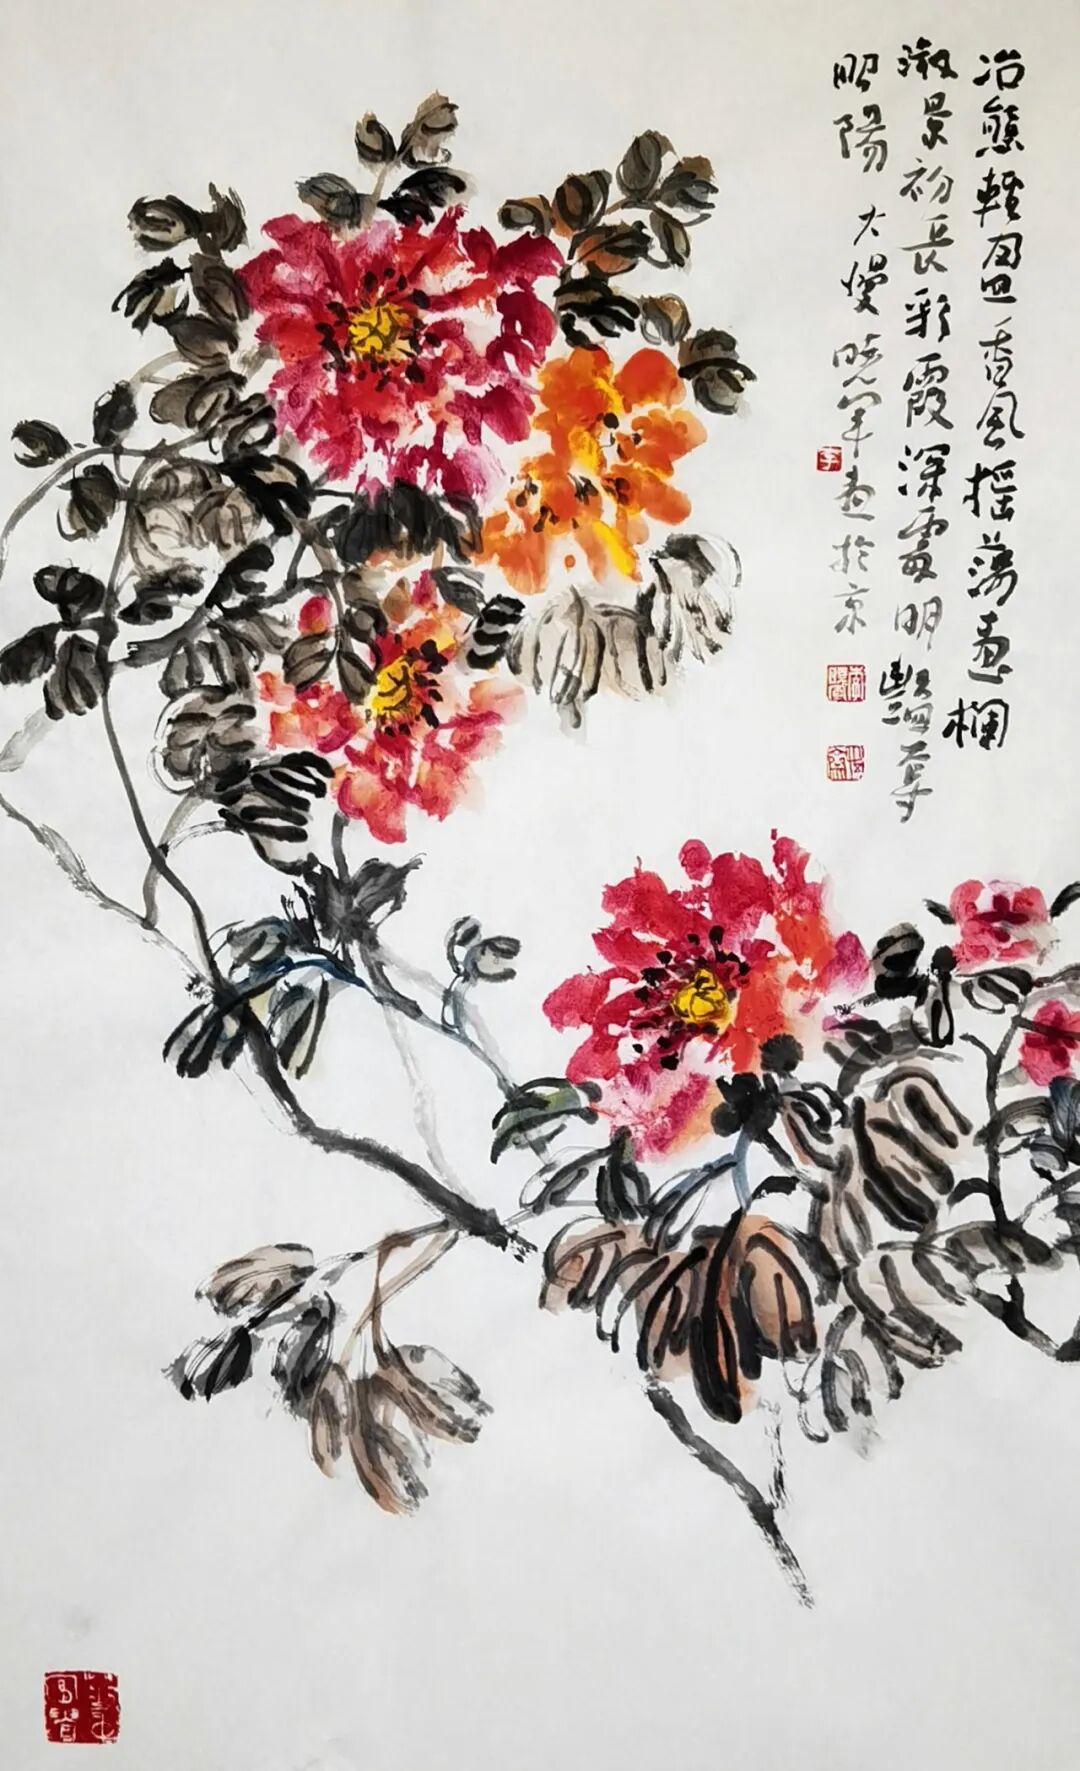 冶態輕盈香風搖蕩畫欄
淑景初長彩霞深處明豔奪
昭陽 大慢曉軍畫於京
李